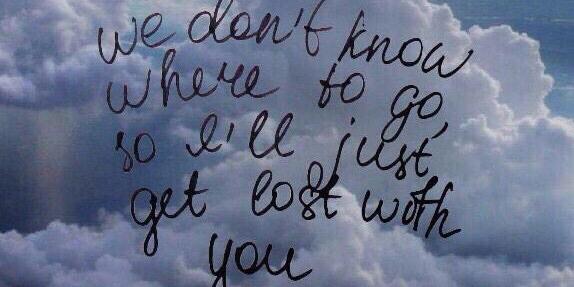 we don't know
where to go,
so I'll just
get lost with
you